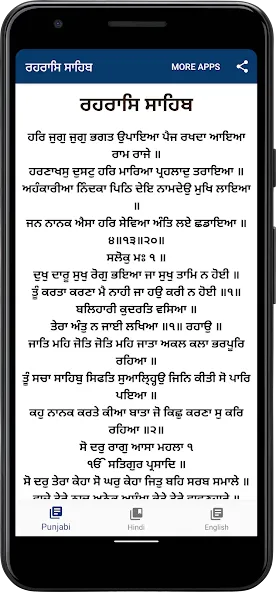 ਰਹਰਾਸਿ ਸਾਹਿਬ
MORE APPS
ਰਹਰਾਸਿ ਸਾਹਿਬ
ਹਰਿ ਜੁਗੁ ਜੁਗੁ ਭਗਤ ਉਪਾਇਆ ਪੈਜ ਰਖਦਾ ਆਇਆ
ਰਾਮ ਰਾਜੇ ॥
ਹਰਣਾਖਸੁ ਦੁਸਟੁ ਹਰਿ ਮਾਰਿਆ ਪ੍ਰਹਲਾਦੁ ਤਰਾਇਆ ॥
ਅਹੰਕਾਰੀਆ ਨਿੰਦਕਾ ਪਿਠਿ ਦੇਇ ਨਾਮਦੇਉ ਮੁਖਿ ਲਾਇਆ
॥
ਜਨ ਨਾਨਕ ਐਸਾ ਹਰਿ ਸੇਵਿਆ ਅੰਤਿ ਲਏ ਛਡਾਇਆ ॥
੪॥੧੩॥੨੦॥
ਸਲੋਕੁ ਮਃ ੧ ॥
ਦੁਖੁ ਦਾਰੂ ਸੁਖੁ ਰੋਗੁ ਭਇਆ ਜਾ ਸੁਖੁ ਤਾਮਿ ਨ ਹੋਈ ॥
ਤੂੰ ਕਰਤਾ ਕਰਣਾ ਮੈ ਨਾਹੀ ਜਾ ਹਉ ਕਰੀ ਨ ਹੋਈ ॥੧॥
ਬਲਿਹਾਰੀ ਕੁਦਰਤਿ ਵਸਿਆ ॥
ਤੇਰਾ ਅੰਤੁ ਨ ਜਾਈ ਲਖਿਆ ॥੧॥ ਰਹਾਉ ॥
ਜਾਤਿ ਮਹਿ ਜੋਤਿ ਜੋਤਿ ਮਹਿ ਜਾਤਾ ਅਕਲ ਕਲਾ ਭਰਪੂਰਿ
ਰਹਿਆ ॥
ਤੂੰ ਸਚਾ ਸਾਹਿਬੁ ਸਿਫਤਿ ਸੁਆਲ੍ਹਿਉ ਜਿਨਿ ਕੀਤੀ ਸੋ ਪਾਰਿ
ਪਇਆ ॥
ਕਹੁ ਨਾਨਕ ਕਰਤੇ ਕੀਆ ਬਾਤਾ ਜੋ ਕਿਛੁ ਕਰਣਾ ਸੁ ਕਰਿ
ਰਹਿਆ ॥੨॥
ਸੋ ਦਰੁ ਰਾਗੁ ਆਸਾ ਮਹਲਾ ੧
ੴ ਸਤਿਗੁਰ ਪ੍ਰਸਾਦਿ ॥
ਸੋ ਦਰੁ ਤੇਰਾ ਕੇਹਾ ਸੋ ਘਰੁ ਕੇਹਾ ਜਿਤੁ ਬਹਿ ਸਰਬ ਸਮਾਲੇ ॥
Punjabi
Hindi
English